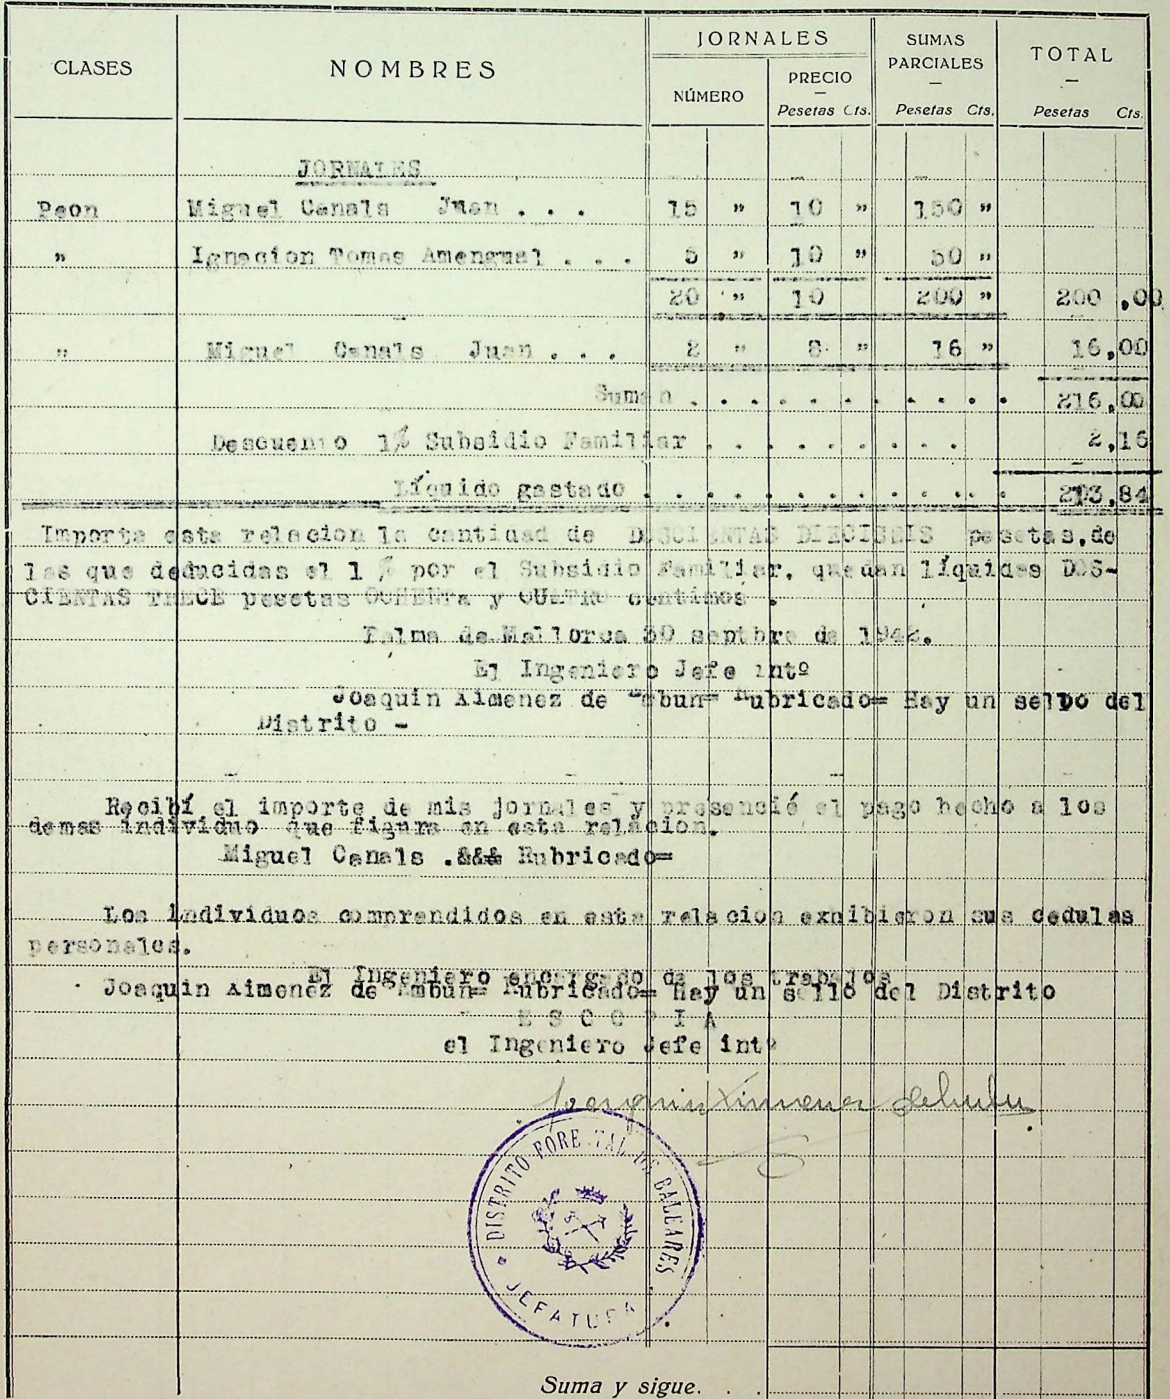 CLASES NOMBRES JORNALES SUMAS PARCIALES TOTAL
NÚMERO PRECIO
Pesetas Cts. Pesetas Cts. Pesetas Cts.
JORNALES
Peon Miguel Canals Juan . . . 15 " 10 " 150 "
" Ignacion Tomas Amengual . . . 5 " 10 " 50 "
20 " 10 200 " 200 .00
" Miguel Canals Juan . . . 2 " 8 " 16 " 16,00
Suman . . . . . . . . . . . . 216,00
Descuento 1% Subsidio Familiar . . . . . . . . . 2,16
Líquido gastado . . . . . . . . . . . . 213,84
Importa esta relacion la cantidad de DOSCIENTAS DIECISEIS pesetas,de
las que deducidas el 1 % por el Subsidio Familiar, quedan líquidas DOS-
CIENTAS TRECE pesetas OCHENTA y CUATRO centimos .
Palma de Mallorca 30 septbre de 1942.
El Ingeniero Jefe intº
Joaquin Ximenez de Embun= Rubricado= Hay un sello del
Distrito -
Recibí el importe de mis jornales y presencié el pago hecho a los
demas individuo que figura en esta relacion.
Miguel Canals .&&& Rubricado=
Los individuos comprendidos en esta relacion exhibieron sus cedulas
personales.
El Ingeniero encargaso de los trabajos
Joaquin Ximenez de Embun= Rubricado= Hay un sello del Distrito
E S C O P I A
el Ingeniero Jefe intº
Joaquin Ximenez deEmbun
DISTRITO FORESTAL DE BALEARES
JEFATURA
Suma y sigue. . .